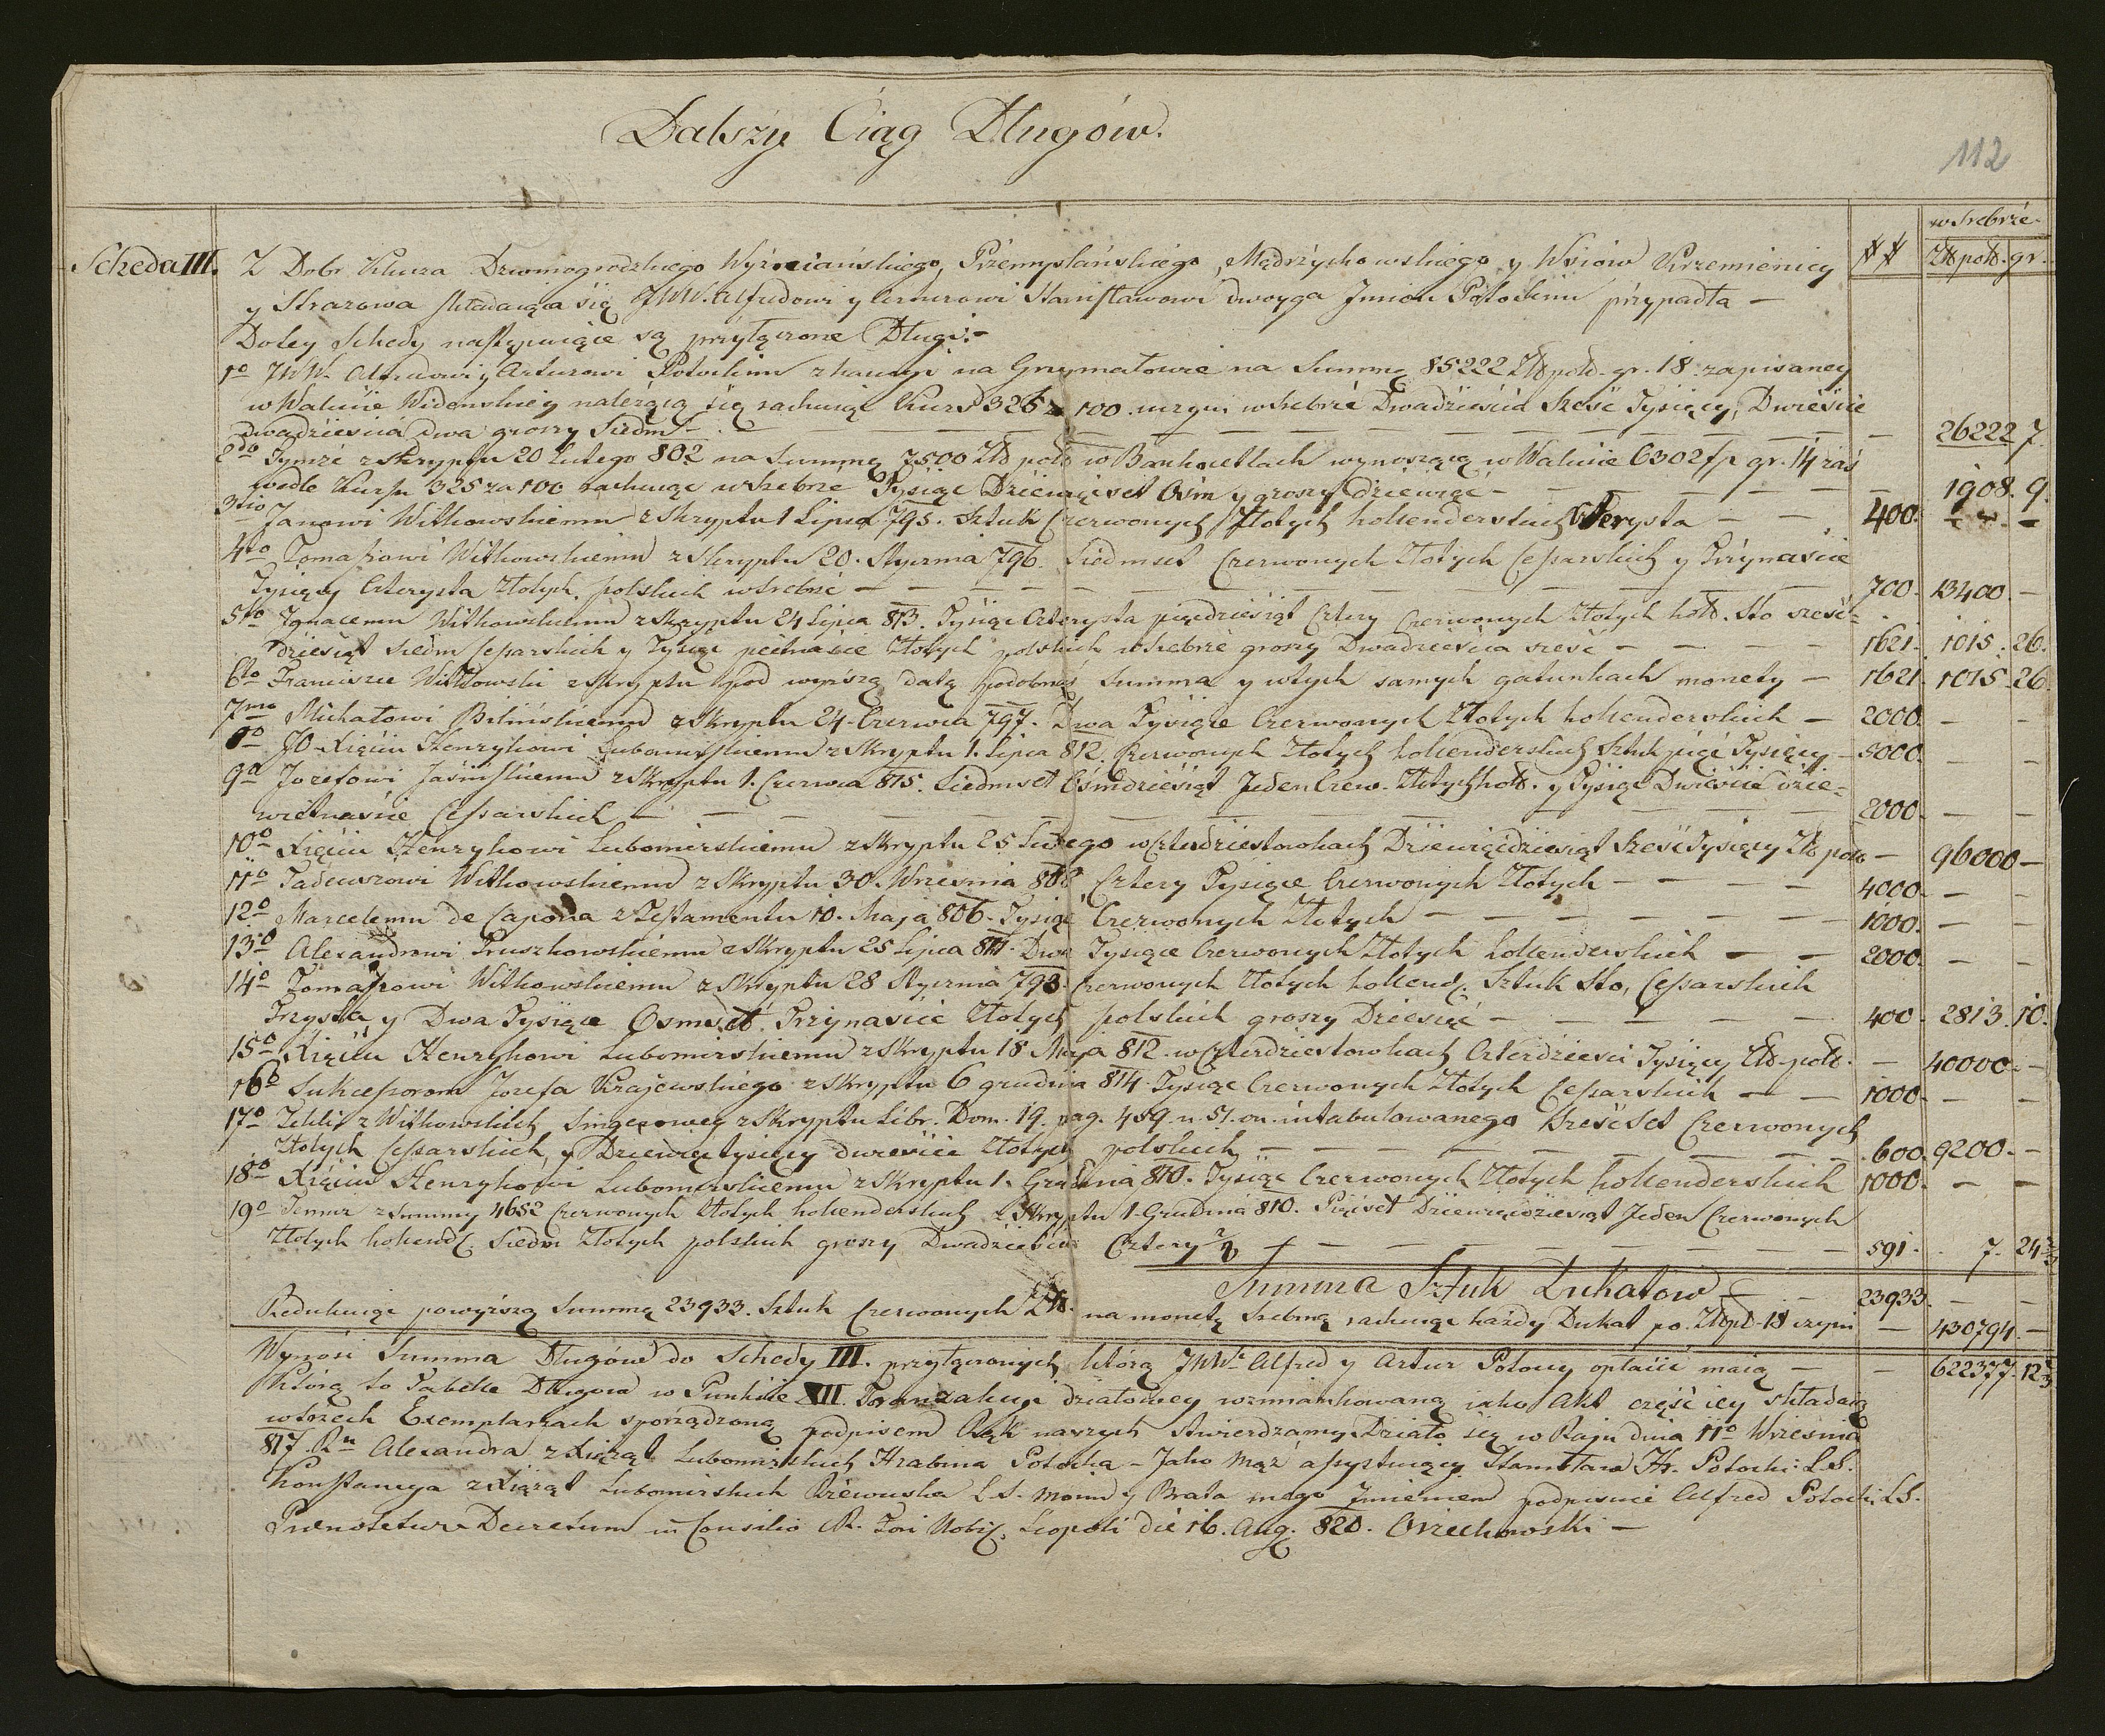 Dalszy Ciąg Długów.
112
w Srebrze
Scheda III. Z Dobr Klucza Dzwinogrodzkiego Wyżniańskiego, Przemyslańskiego, Mędrzychowskiego y Wsiow Krzemienicy ## Złł polł. gr.
y Strazowa składaiąca się JWW. Alfredowi y Arturowi Stanisławowi dwoyga Jmion Potockim przypadła —
Do tey Schedy następuiące są przyłączone Długi: —
1o JWW. Alfredowi y Arturowi Potockim z kaucyi na Grymałowie na Summę 85222 Złł polł. gr. 18 zapisaney
w Walucie Widenskiey należącą się rachuiąc Kurs 325 za 100. czyni w Srebrze Dwadzieścia Sześć Tysięcy, Dwieście
dwadzieścia dwa groszy Siedm — — 26222 7.
2do Tymże z Skryptu 20 Lutego 802 na Summę 7500 Złł polł w Bankocetlach wynoszącą w Walucie 6302 fp gr. 14 zaś
wedle Kursu 325 za 100 rachuiąc w Srebrze Tysiąc Dziewięćset Ośm y groszy dziewięć — — 1908. 9.
3tio Janowi Witkowskiemu z Skryptu 1 Lipca 795. Sztuk Czerwonych Złotych hollenderskich Czterysta — — 400. — —
4to Tomaszowi Witkowskiemu z Skryptu 20. Stycznia 796. Siedmset Czerwonych Złotych Cesarskich y Trzynaście
Tysięcy Czterysta Złotych polskich w Srebrze — 700. 13400. —
5to Ignacemu Witkowskiemu z Skryptu 24 Lipca 813. Tysiąc Czterysta pięćdziesiąt Cztery Czerwonych Złotych holł. Sto sześć=
dziesiąt siedm Cesarskich y Tysiąc piętnaście Złotych polskich w Srebrze groszy Dwadzieścia sześć — 1621. 1015. 26.
6to Franciszce Witkowski z Skryptu pod wyższą datą podobnaś Summa y w tych samych gatunkach monety — 1621. 1015. 26.
7mo Michałowi Bilińskiemu z Skryptu 24 Czerwca 797. Dwa Tysiące Czerwonych Złotych hollenderskich — 2000. — —
8o JO. Xięciu Henrykowi Lubomirskiemu z Skryptu 1. Lipca 812. Czerwonych Złotych hollenderskich Sztuk pięć Tysięcy — 5000. — —
9o Jozefowi Jasińskiemu z Skryptu 1. Czerwca 815. Siedmset Ośmdziesiąt Jeden Czerw. Złotych holł. y Tysiąc Dwieście dzie=
więtnaście Cesarskich — 2000. — —
10o Xięciu Henrykowi Lubomirskiemu z Skryptu 25 Lutego w Czterdziestowkach Dziewięćdziesiąt Sześć Tysięcy Złł polł — 96000 —
11o Tadeuszowi Witkowskiemu z Skryptu 30. Wrzesnia 808 Cztery Tysiące Czerwonych Złotych — 4000. — —
12o Marcelemu de Caporra z Testamentu 10. Maja 806. Tysiąc Czerwonych Złotych — 1000. — —
13o Alexandrowi Pruszkowskiemu z Skryptu 25 Lipca 811. Dwa Tysiące Czerwonych Złotych hollenderskich — — 2000. — —
14o Tomaszowi Witkowskiemu z Skryptu 28 Stycznia 793. Czerwonych Złotych hollend. Sztuk Sto, Cesarskich
Trzysta y Dwa Tysiące Osmset Trzynaście Złotych polskich groszy Dziesięć — 400. 2813. 10.
15o Xięciu Henrykowi Lubomirskiemu z Skryptu 18 Maja 812. w Czterdziestowkach Czterdzieści Tysięcy Złł. polł. — 40000. —
16o Sukcessorom Jozefa Krajewskiego z Skryptu 6 grudnia 814. Tysiąc Czerwonych Złotych Cesarskich — 1000. — —
17o Tekli z Witkowskich Singerowey z Skryptu Libr. Dom. 19. pag. 459. n. 51. on. intabulowanego Sześćset Czerwonych
Złotych Cesarskich, y Dziewięć tysięcy dwieście Złotych polskich — 600. 9200. —
18o Xięciu Henrykowi Lubomirskiemu z Skryptu 1. Grudnia 810. Tysiąc Czerwonych Złotych hollenderskich 1000. — —
19o Temuż z Summy 4652 Czerwonych Złotych hollenderskich z Skryptu 1 Grudnia 810. Pięćset Dziewięćdziesiąt Jeden Czerwonych
Złotych hollend. Siedm Złotych polskich groszy Dwadzieścia Cztery 2/3 — 591. 7. 24 2/3
Summa Sztuk Dukatow — 23933. — —
Redukuiąc powyższą Summę 23933. Sztuk Czerwonych Złł. na monetę Srebrną rachuiąc każdy Dukat po Złł pol. 18 czyni — 430794. —
Wynosi Summa Długów do Schedy III. przyłączonych, którą JWW. Alfred y Artur Potoccy opłacić maią — — 622377. 12 2/3
Którą to Tabellę Długow w Punkcie XII. Tranzakcyi działowey wzmiankowaną iako Akt część iey składaią
w trzech Exemplarzach sporządzoną podpisem Rąk naszych stwierdzamy Działo się w Raju dnia 11o Wrzesnia
817. Rn Alexandra z Xiążąt Lubomirskich Hrabina Potocka – Jako Mąż assystuiący Stanisław Hr. Potocki L.S.
Konstancya z Xiążąt Lubomirskich Rzewuska L.S. moim y Brata mego Jmieniem podpisuię Alfred Potocki L.S.
Prenotetur Decretum in Consilio C.R. Fori Nobil. Leopoli die 16. Aug. 820. Orzechowski —